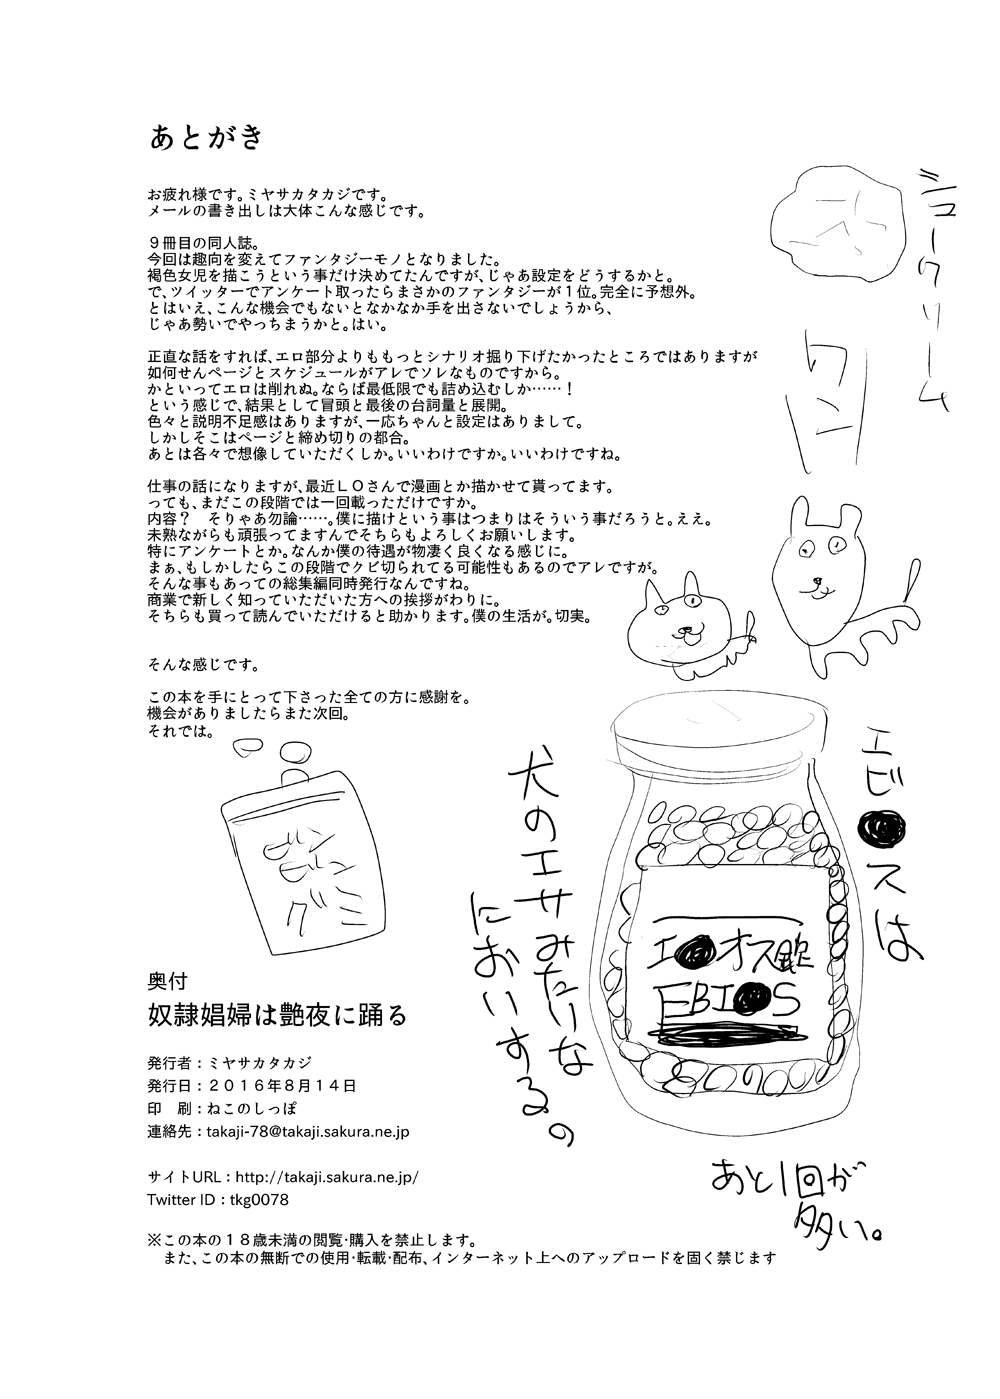 あとがき
お疲れ様です。ミヤサカタカジです。
メールの書き出しは大体こんな感じです。
9冊目の同人誌。
今回は趣向を変えてファンタジーモノとなりました。
褐色女児を描こうという事だけ決めてたんですが、じゃあ設定をどうするかと。
で、ツイッターでアンケート取ったらまさかのファンタジーが1位。完全に予想外。
とはいえ、こんな機会でもないとなかなか手を出さないでしょうから、
じゃあ勢いでやっちまうかと。はい。
正直な話をすれば、エロ部分よりももっとシナリオ掘り下げたかったところではありますが
如何せんページとスケジュールがアレでソレなものですから。
かといってエロは削れぬ。ならば最低限でも詰め込むしか……!
という感じで、結果として冒頭と最後の台詞量と展開。
色々と説明不足感はありますが、一応ちゃんと設定はありまして。
しかしそこはページと締め切りの都合。
あとは各々で想像していただくしか。いいわけですか。いいわけですね。
仕事の話になりますが、最近LOさんで漫画とか描かせて貰ってます。
っても、まだこの段階では一回載っただけですか。
内容? そりゃあ勿論……。僕に描けという事はつまりはそういう事だろうと。ええ。
未熟ながらも頑張ってますんでそちらもよろしくお願いします。
特にアンケートとか。なんか僕の待遇が物凄く良くなる感じに。
まぁ、もしかしたらこの段階でクビ切られてる可能性もあるのでアレですが。
そんな事もあっての総集編同時発行なんですね。
商業で新しく知っていただいた方への挨拶がわりに。
そちらも買って読んでいただけると助かります。僕の生活が。切実。
そんな感じです。
この本を手にとって下さった全ての方に感謝を。
機会がありましたらまた次回。
それでは。
シュークリーム
ワン
エビ●スは
犬のエサみたいな
においするの
エ●オス錠
EBI●S
あと1回が
多い。
グミ
奥付
奴隷娼婦は艶夜に踊る
発行者:ミヤサカタカジ
発行日:2016年8月14日
印　刷:ねこのしっぽ
連絡先:takaji-78@takaji.sakura.ne.jp
サイトURL:http://takaji.sakura.ne.jp/
Twitter ID:tkg0078
※この本の18歳未満の閲覧・購入を禁止します。
また、この本の無断での使用・転載・配布、インターネット上へのアップロードを固く禁じます